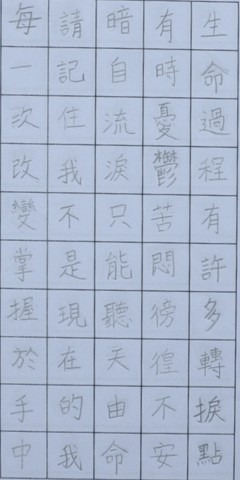 生命過程有許多轉捩點
有時憂鬱苦悶徬徨不安
暗自流淚只能聽天由命
請記住我不是現在的我
每一次改變掌握於手中